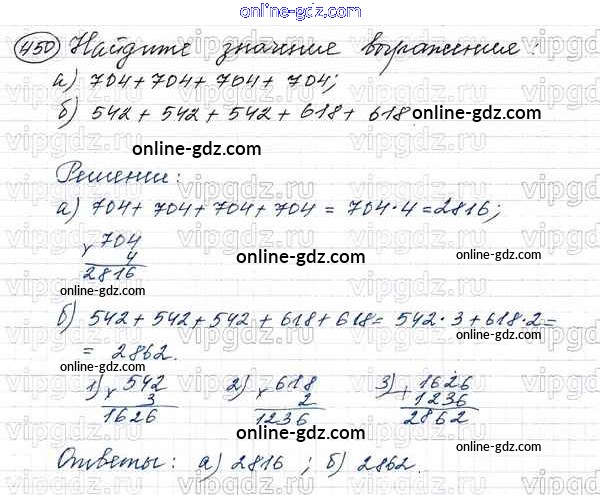 online-gdz.com
450 Найдите значение выражения:
а) 704 + 704 + 704 + 704;
б) 542 + 542 + 542 + 618 + 618 online-gdz.com
online-gdz.com
Решение:
а) 704 + 704 + 704 + 704 = 704 · 4 = 2816;
× 704
4
2816
online-gdz.com
online-gdz.com
б) 542 + 542 + 542 + 618 + 618 = 542 · 3 + 618 · 2 =
= 2862.
online-gdz.com
1) × 542 2) × 618 3) + 1626
3 2 1236
1626 1236 2862
online-gdz.com
Ответы: а) 2816 ; б) 2862.
online-gdz.com